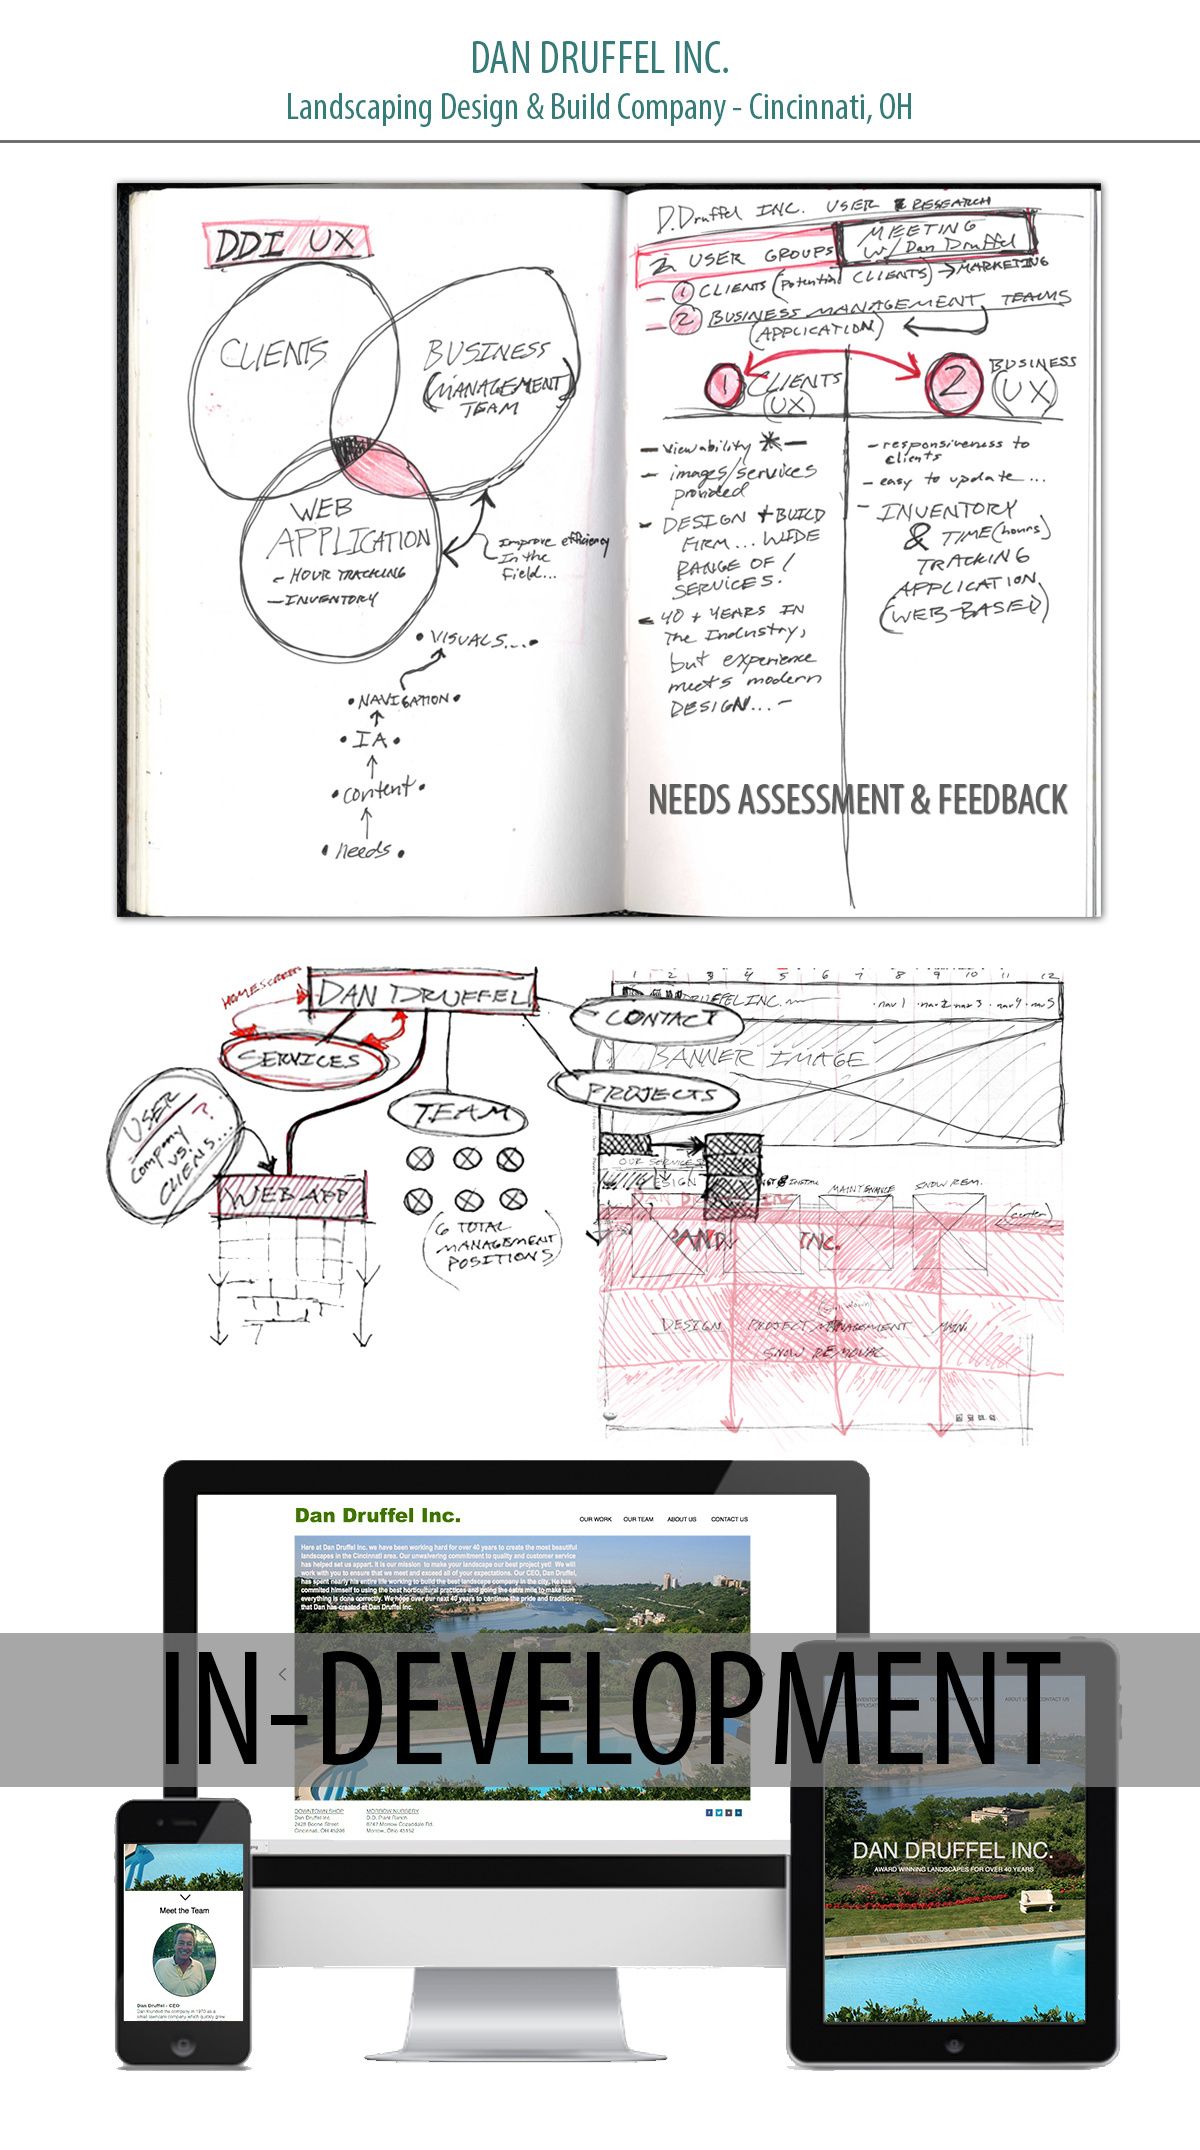 DAN DRUFFEL INC.
Landscaping Design & Build Company - Cincinnati, OH
DDI UX
CLIENTS
BUSINESS
(MANAGEMENT
TEAM
WEB
APPLICATION
- HOUR TRACKING
- INVENTORY
Improve efficiency
In the
field...
• VISUALS.... •
• NAVIGATION •
• IA •
• content •
• needs •
D.Druffel INC. USER RESEARCH
2 USER GROUPS
MEETING
w/ Dan Druffel
1 CLIENTS (Potential CLIENTS) → MARKETING
2 BUSINESS MANAGEMENT TEAMS
(APPLICATION)
1 CLIENTS
(UX)
2 BUSINESS
(UX)
- viewability * -
- images/services
provided
- DESIGN + BUILD
FIRM... WIDE
RANGE OF
SERVICES.
- 40 + YEARS IN
the Industry,
but experience
meets modern
DESIGN... -
- responsiveness to
clients
- easy to update ...
- INVENTORY
& TIME (hours)
TRACKING
APPLICATION
(WEB-BASED)
NEEDS ASSESSMENT & FEEDBACK
HOMESCREEN
DAN DRUFFEL
SERVICES
CONTACT
PROJECTS
TEAM
USER ?
Company
vs.
CLIENTS...
WEB APP
(6 TOTAL
MANAGEMENT
POSITIONS)
1 2 3 4 5 6 7 8 9 10 11 12
DRUFFEL INC.
nav 1 · nav 2 · nav 3 · nav 4 · nav 5
BANNER IMAGE
OUR SERVICES
DESIGN
INSTALL
MAINTENANCE
SNOW REM.
DAN
INC.
(center)
INC.
DESIGN
PROJECT MANAGEMENT
MAIN.
SNOW REMOVAL
Dan Druffel Inc.
OUR WORK OUR TEAM ABOUT US CONTACT US
Here at Dan Druffel Inc. we have been working hard for over 40 years to create the most beautiful
landscapes in the Cincinnati area. Our unwaivering commitment to quality and customer service
has helped set us appart. It is our mission to make your landscape our best project yet! We will
work with you to ensure that we meet and exceed all of your expectations. Our CEO, Dan Druffel,
has spent nearly his entire life working to build the best landscape company in the city. He has
commited himself to using the best horticultural practices and going the extra mile to make sure
everything is done correctly. We hope over our next 40 years to continue the pride and tradition
that Dan has created at Dan Druffel Inc.
IN-DEVELOPMENT
DOWNTOWN SHOP
Dan Druffel Inc.
2428 Boone Street
Cincinnati, OH 45206
MORROW NURSERY
D.D. Plant Ranch
Morrow, Ohio 45152
ABOUT US CONTACT US
DAN DRUFFEL INC.
AWARD WINNING LANDSCAPES FOR OVER 40 YEARS
Meet the Team
Dan Druffel - CEO
Dan founded the company in 1970 as a
small lawncare company which quickly grew